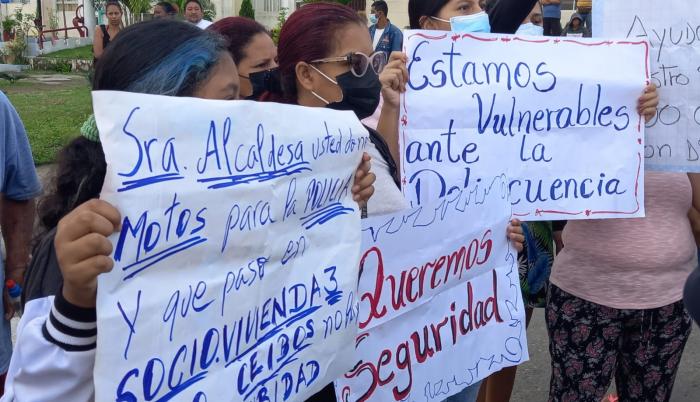 Sra. Alcaldesa usted
Motos para la POLICIA
Y que paso en
SOCIO.VIVIENDA 3
CEIBOS no
Estamos
Vulnerables
ante la
Delincuencia
Queremos
Seguridad
Ayuda